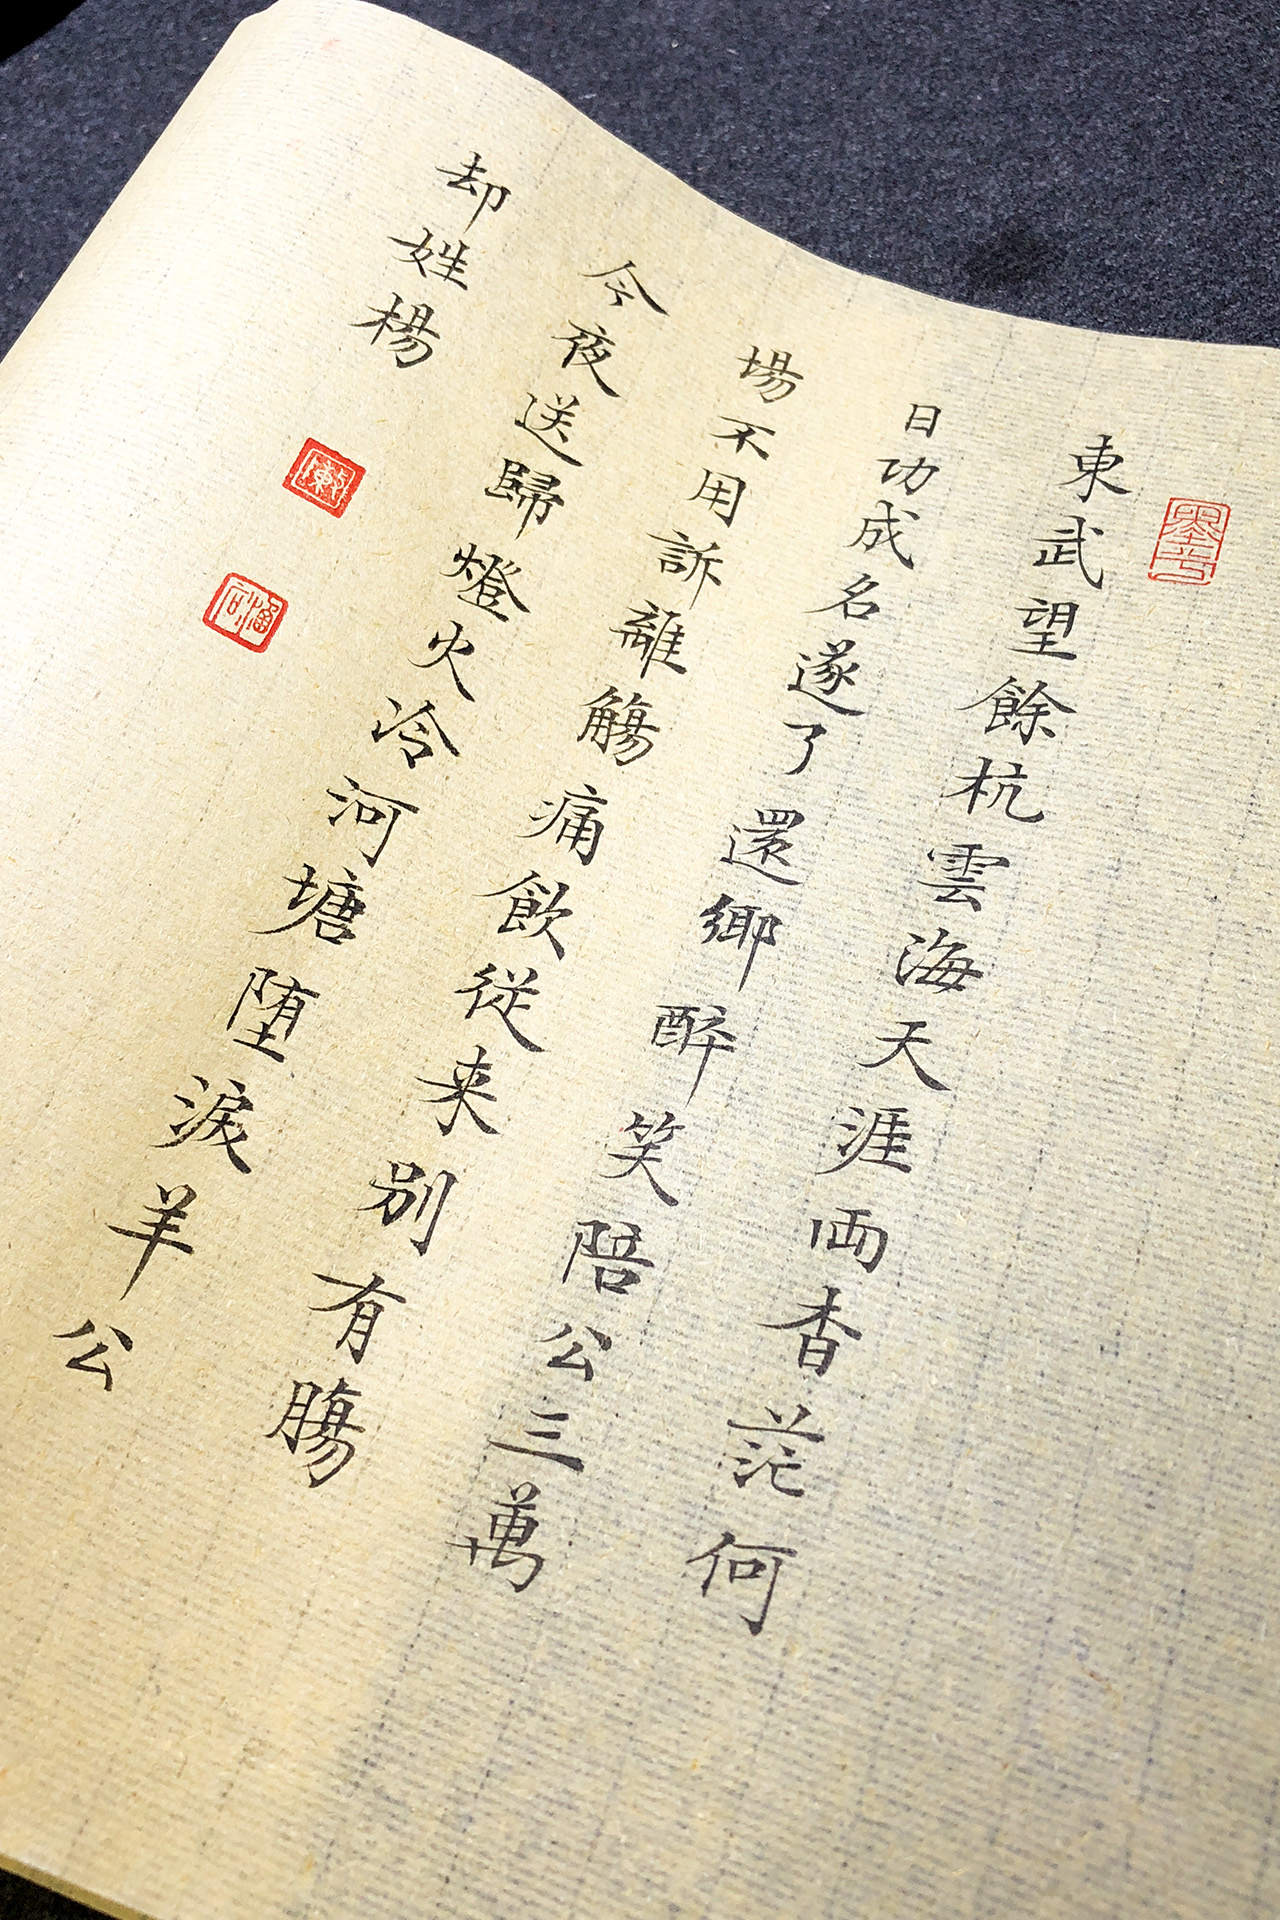 東武望餘杭雲海天涯両杳茫何
日功成名遂了還鄉醉笑陪公三萬
場不用訴離觴痛飲從来別有腸
今夜送歸燈火冷河塘堕淚羊公
却姓楊